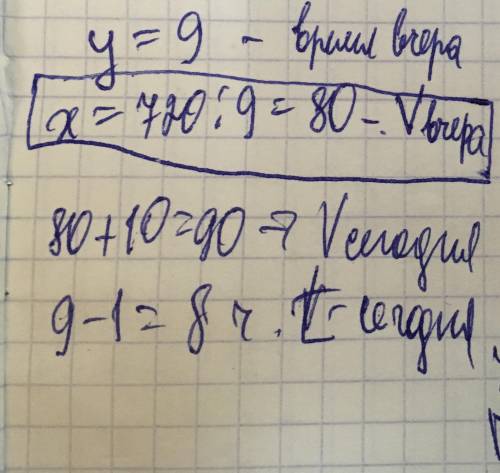 y = 9 - время вчера
x = 720 : 9 = 80 -. V вчера
80 + 10 = 90 → V сегодня
9 - 1 = 8 ч. t - сегодня